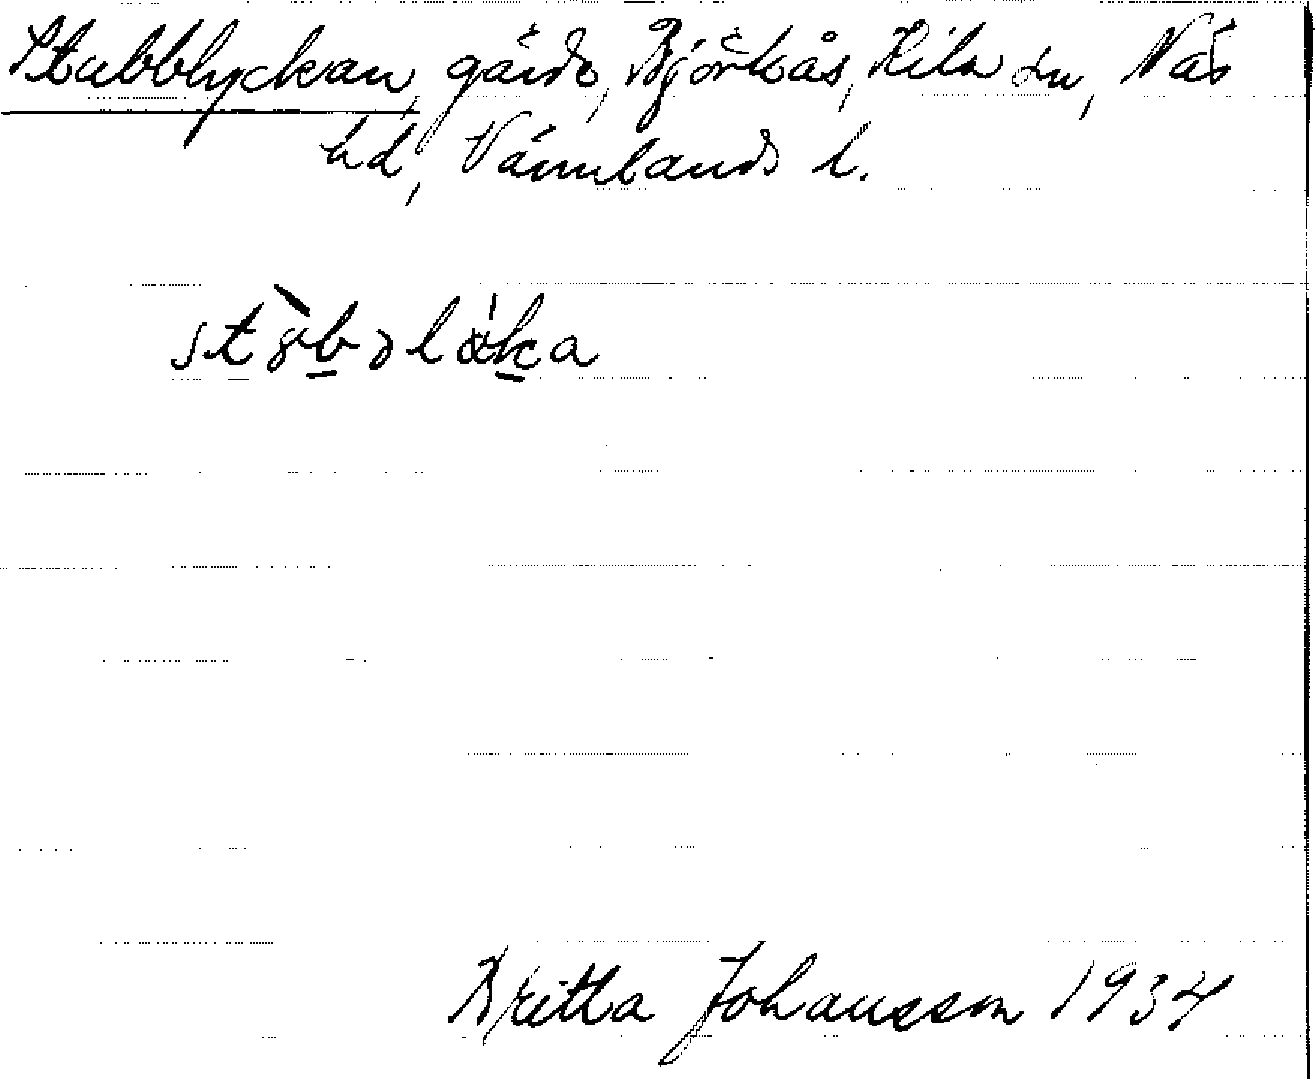 Stubblyckan, gärde, Björkås, Kila sn, Näs
hd, Värmlands l.
Britta Johansson 1934